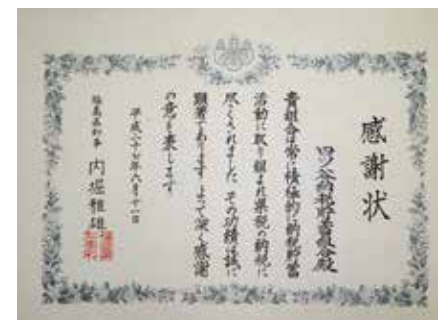 感謝状
四ツ谷納税貯蓄組合殿
貴組合は常に積極的に納税貯蓄
活動に取り組まれ県税の納税に
尽くされました その功績は誠に
顕著であります よって深く感謝
の意を表します
平成二十七年八月十一日
福島県知事 内堀雅雄